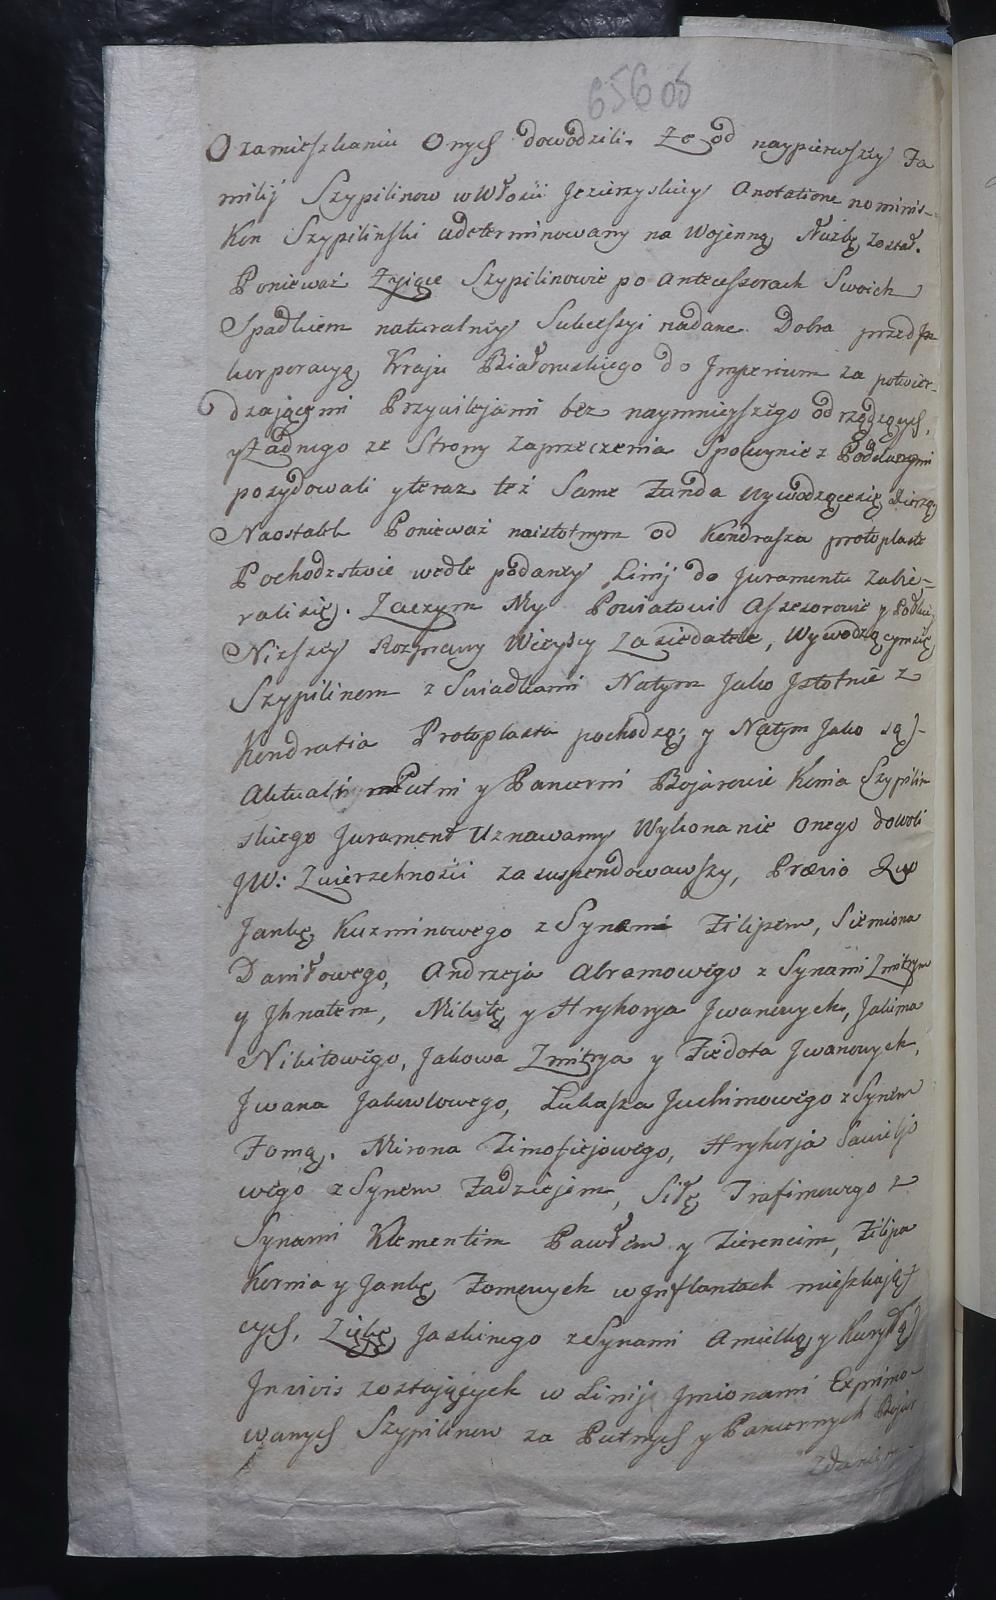 656 os
O zamieszkaniu Onych dowodzili. Że od naypierwszey Fa
milij Szypilinow w Włości Jezierzyskiey Anotatione nominis
Kon Szypilinski udeterminowany na Wojenną służbę został.
Ponieważ Żyiące Szypilinowie po Antecessorach Swoich
Spadkiem naturalney Sukcessyi nadane Dobra przed In
korporacyą Kraju Białoruskiego do Imperium za potwier-
dzającemi Przywilejami bez naymnieyszego od rządzących,
y Żadnego ze Strony zaprzeczenia Spokoynie z Poddanymi
posydowali y teraz też Same Funda Wywodzącesię dzierżą
Naostatek Ponieważ naistotnym od Kondrasza protoplaste
Pochodzstwie wedle podaney Linij do Juramentu zabie-
rali się. Zaczym My Powiatowi Assesorowie y
Niższey Rozprawy Wieyscy Zasiedatele, Wywodzącymsię
Szypilinom z Swiadkami Natym Jako Jstotnie z
Kondratia Protoplasta pochodzą; y Natym Jako są
Aktualnym Putni y Pancerni Bojarowie Konia Szypilin
skiego Jurament Uznawamy Wykonanie onego dowoli
JW: Zwierzchności zasuspendowawszy, Prævio
Jankę Kuzminowego z Synami Filipem, Siemiona
Daniłowego, Andrzeja Abramowego z Synami Zmitrym
y Jhnatem, Mikitę y Hryhorya Jwanowych, Jakima
Nikitowego, Jakowa Zmitrya y Fiedota Jwanowych,
Jwana Jakowlowego, Łukasza Juchimowego z Synem
Fomą. Mirona Timofiejowego, Hryhorja Sawieljo
wego z Synem Fadziejem, Siłę Trafimowego z
Synami Klementim Pawłem y Tierencim, Filipa
Kornia y Jankę Fomowych w Jnflantach mieszkają
cych, Jaskinego z Synami Amielką y
Jnvivis zostających w Linij Jmionami Exprimo-
wanych Szypilinow za Putnych y Pancernych Bojar